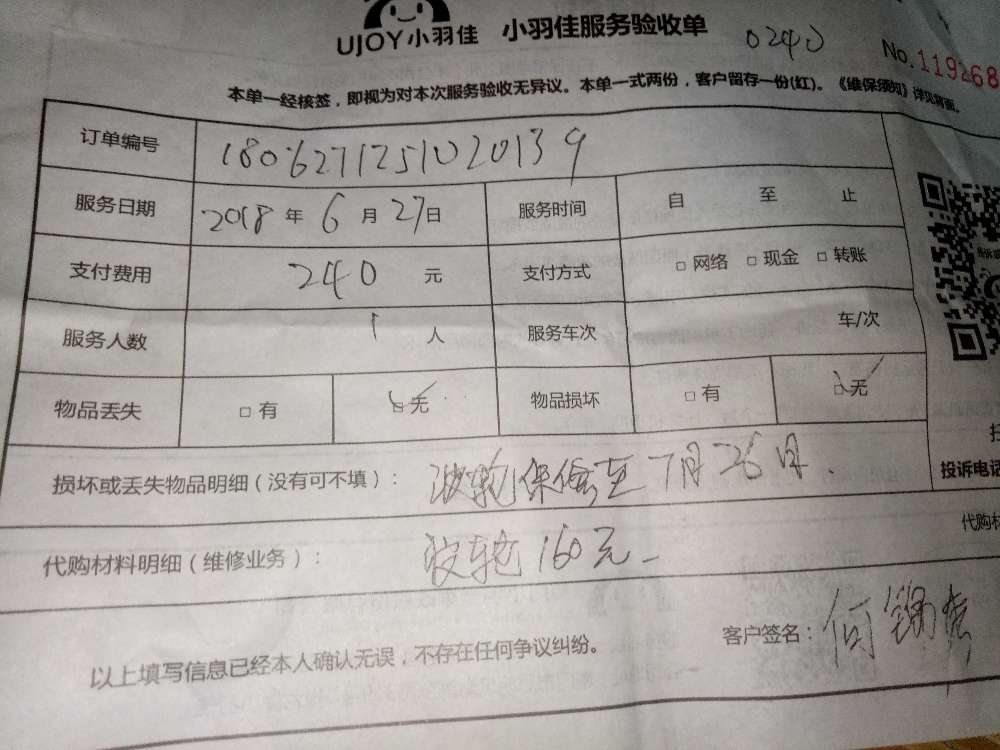 UJOY小羽佳 小羽佳服务验收单 0240
No.119268
本单一经核签，即视为对本次服务验收无异议。本单一式两份，客户留存一份(红)。《维保须知》详见背面。
订单编号 180627125102013 9
服务日期 2018 年 6 月 27 日 服务时间 自 至 止
支付费用 240 元 支付方式 □ 网络 □ 现金 □ 转账
服务人数 1 人 服务车次 车/次
物品丢失 □ 有 □ 无 物品损坏 □ 有 □ 无
损坏或丢失物品明细（没有可不填）： 波轮保修至7月26日.
投诉电话
代购材料明细（维修业务）： 波轮160元
代购材
以上填写信息已经本人确认无误，不存在任何争议纠纷。 客户签名： 何